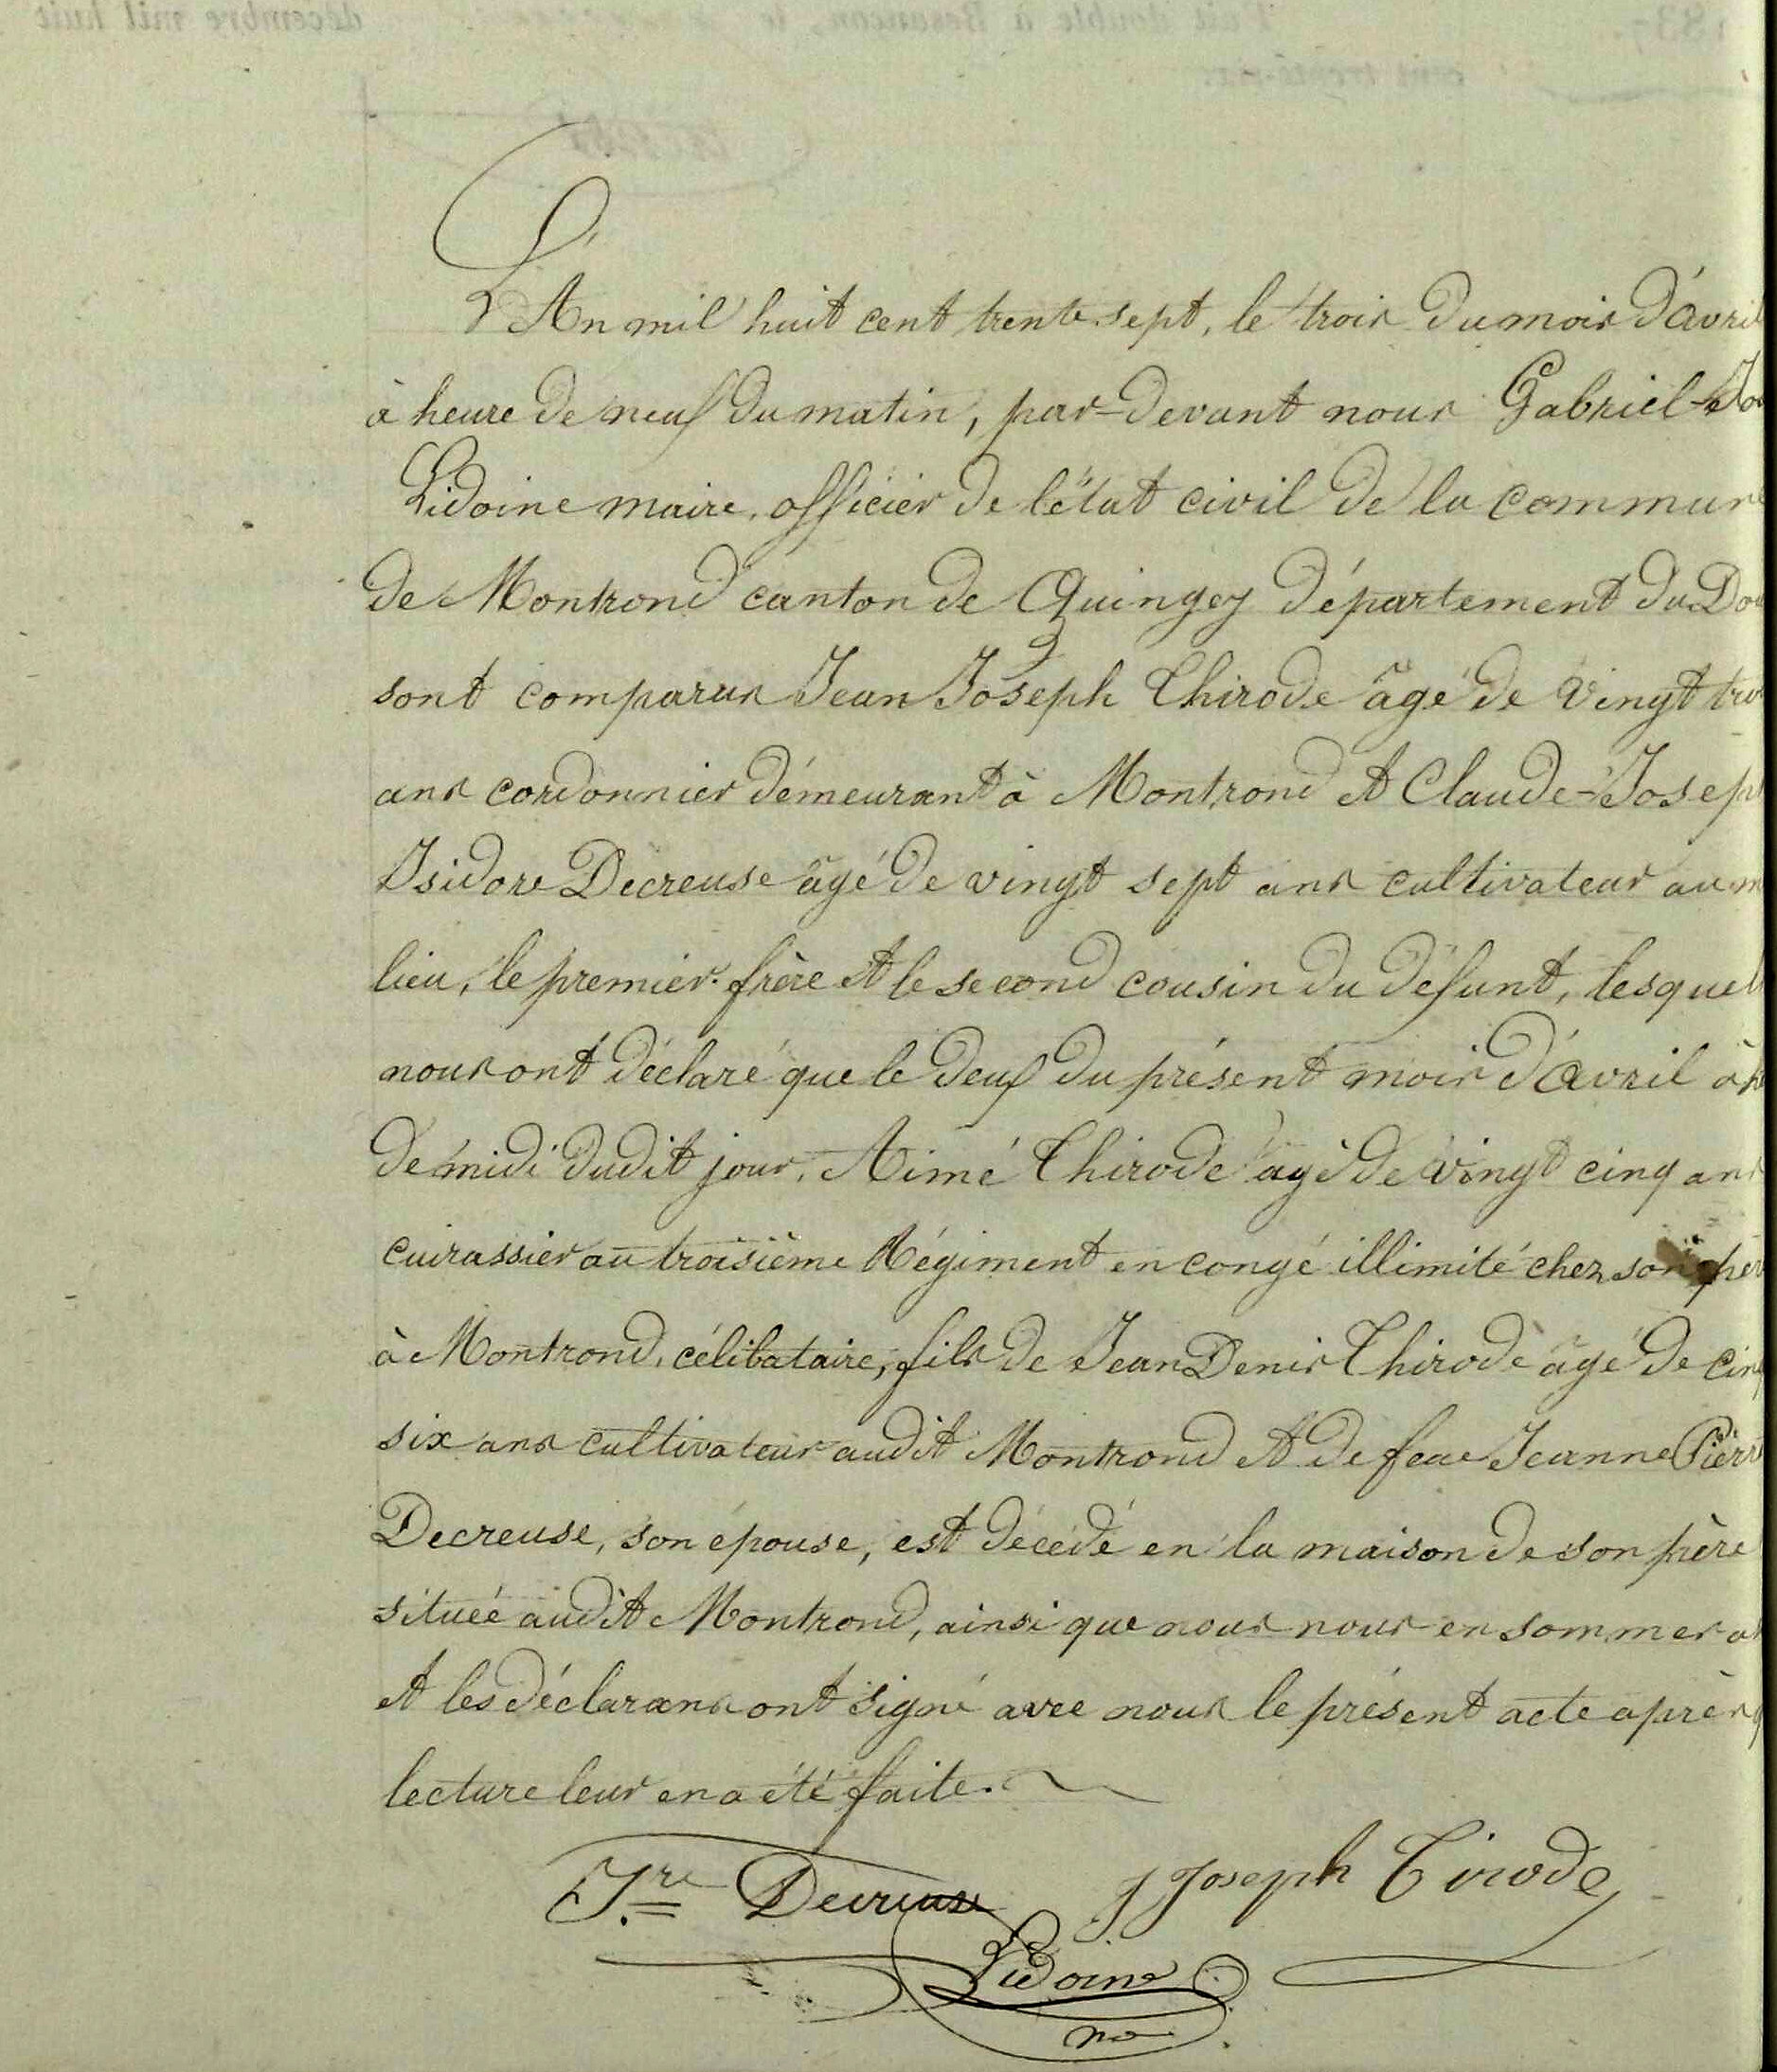 L'An mil huit cent trente sept, le trois du mois d'avril
à heure de neuf du matin, par-devant nous Gabriel
Lidoine maire, officier de l'état civil de la commune
de Montrond canton de Quingey département du Dou
sont comparus Jean Joseph Thirode âgé de vingt troi
ans cordonnier démeurant à Montrond et Claude-Joseph
Isidore Decreuse âgé de vingt sept ans cultivateur au m
lieu, le premier frère et le second cousin du défunt, lesquel
nous ont déclaré que le deuf du présent mois d'avril à h
de midi dudit jour, Aimé Thirode agé de vingt cinq ans
cuirassier au troisième Régiment en congé illimité chez son pèr
à Montrond, célibataire, fils de Jean Denis Thirode âgé de cinq
six ans cultivateur audit Montrond et de feue Jeanne Pierr
Decreuse, son épouse, est décédé en la maison de son père
située audit Montrond, ainsi que nous nous en sommes a
et les déclarans ont signé avec nous le présent acte après q
lecture leur en a été faite.
Jre Decreuse J Joseph Tirode
Lidoine